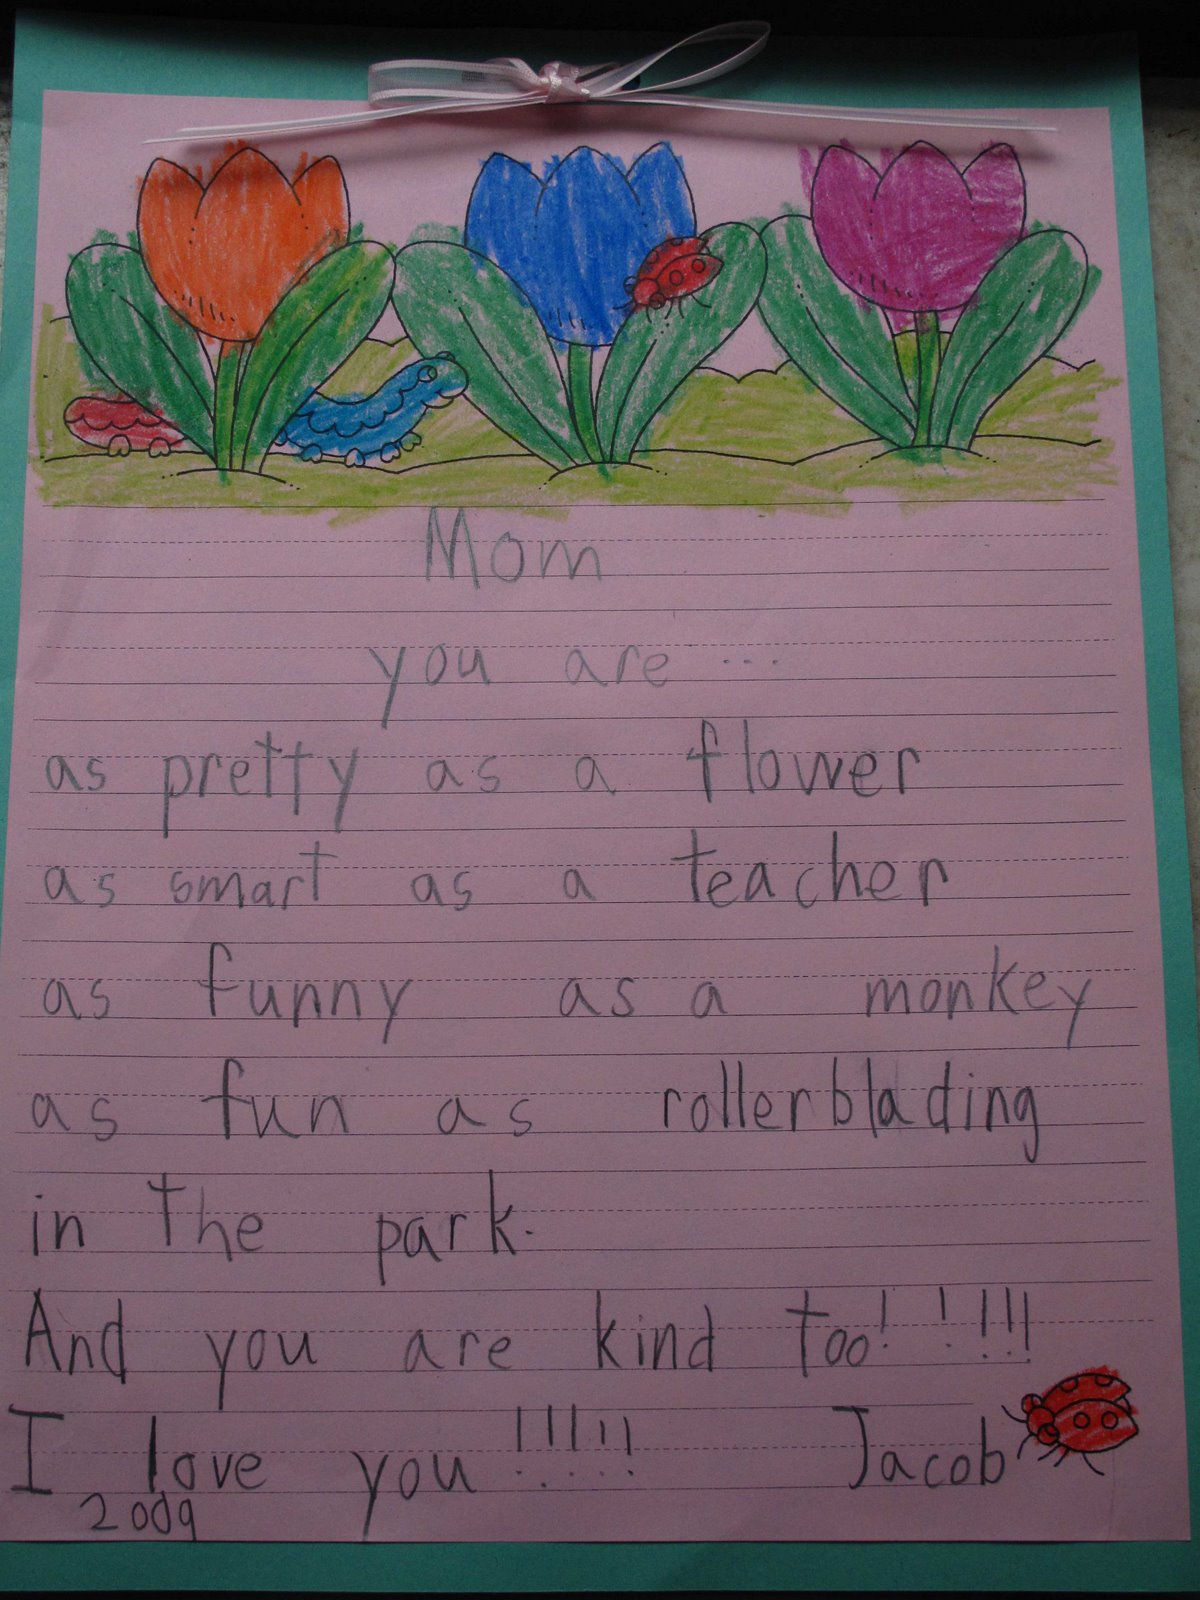 Mom
you are ...
as pretty as a flower
as smart as a teacher
as funny as a monkey
as fun as rollerblading
in the park.
And you are kind too!!!!!
I love you !!!!! Jacob
2009